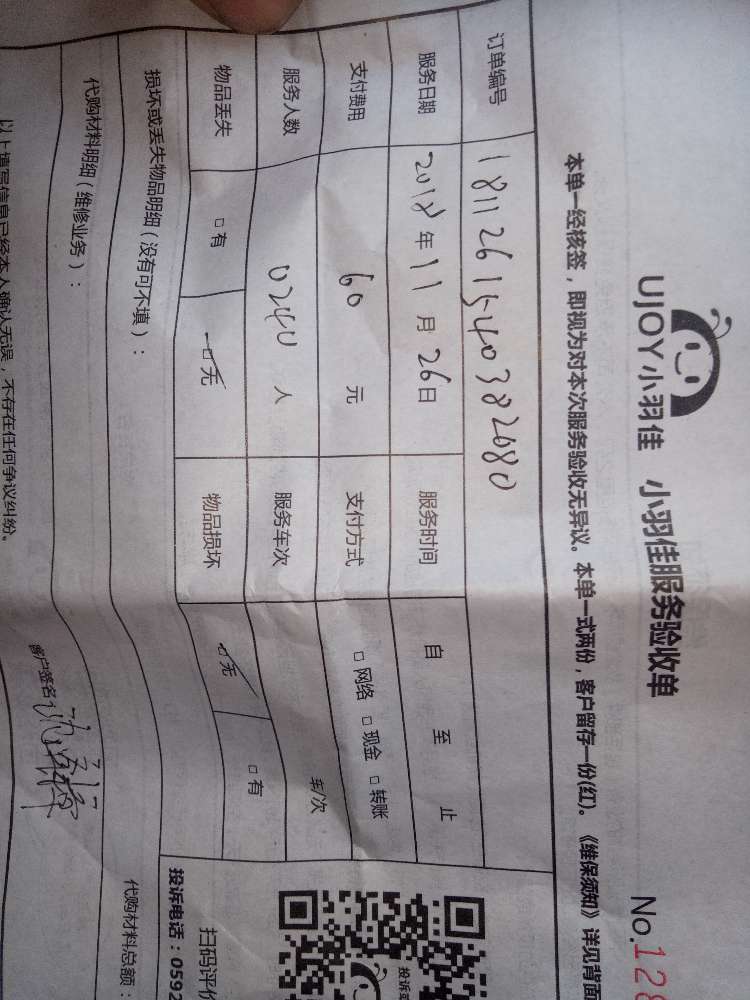 UJOY小羽佳 小羽佳服务验收单
No.128
本单一经核签，即视为对本次服务验收无异议。本单一式两份，客户留存一份(红)。《维保须知》详见背面
订单编号 1811261540382080
服务日期 2018年11月26日 服务时间 自 至 止
支付费用 60 元 支付方式 □网络 □现金 □转账
服务人数 0240 人 服务车次 车/次
物品丢失 □有 □无 物品损坏 □无 □有
损坏或丢失物品明细（没有可不填）：
代购材料明细（维修业务）：
代购材料总额：
以上填写信息已经本人确认无误，不存在任何争议纠纷。
客户签名
扫码评价
投诉电话：0592